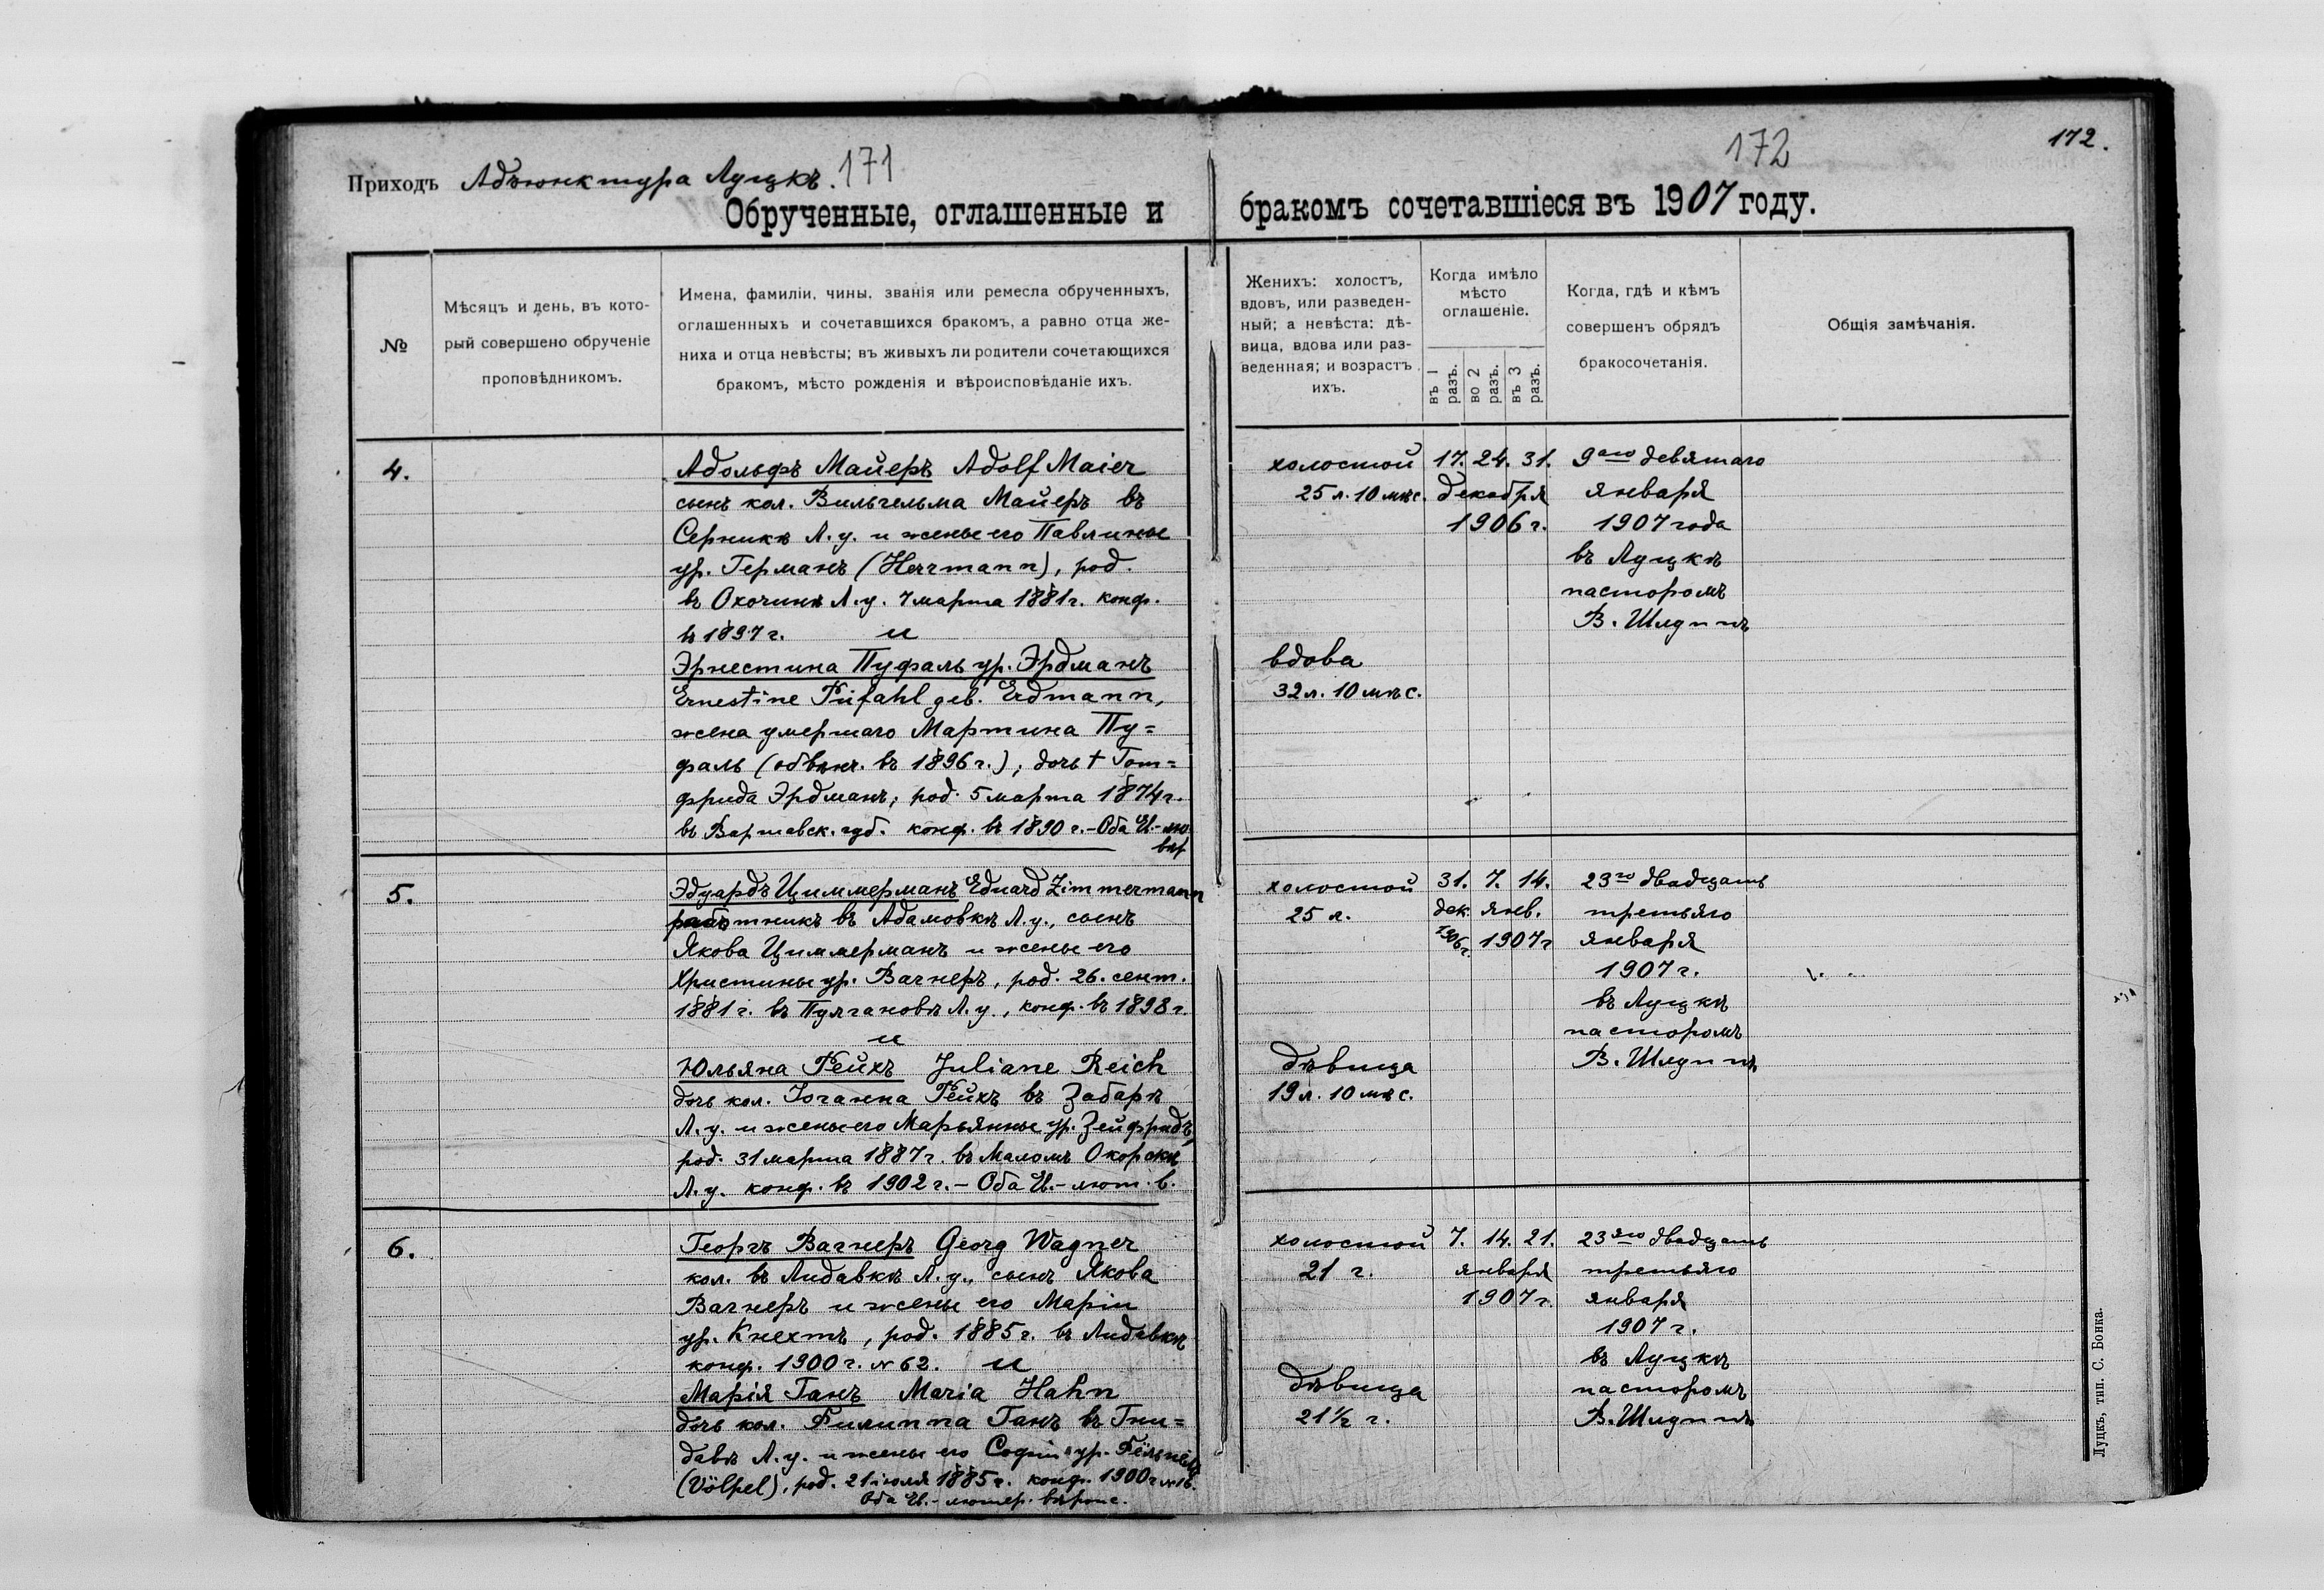 Приходъ Адъюнктура Луцкъ. 171
Обрученные, оглашенные и
№
Мѣсяцъ и день, въ кото-
рый совершено обрученіе
проповѣдникомъ.
Имена, фамиліи, чины, званія или ремесла обрученныхъ,
оглашенныхъ и сочетавшихся бракомъ, а равно отца же-
ниха и отца невѣсты; въ живыхъ ли родители сочетающихся
бракомъ, мѣсто рожденія и вѣроисповѣданіе ихъ.
4.
Адольфъ Майеръ Adolf Maier
сынъ кол. Вильгельма Майеръ въ
Серникѣ Л. у. и жены его Павлины
ур. Германъ (Herrmann), род.
въ Охочинѣ Л. у. 7 марта 1881 г. конф.
въ 1897 г. и
Эрнестина Пуфаль ур. Эрдманъ
Ernestine Pufahl geb. Erdmann,
жена умершаго Мартина Пу=
фаль (обвѣнч. въ 1896 г.); дочь † Гот=
фрида Эрдманъ; род. 5 марта 1874 г.
въ Варшавск. губ. конф. въ 1890 г. – Оба Ев.-лю.
вѣр
5.
Эдуардъ Циммерманъ Eduard Zimmermann
работникъ въ Адамовкѣ Л. у., сынъ
Якова Циммерманъ и жены его
Христины ур. Вагнеръ, род. 26. сент.
1881 г. въ Пулгановѣ Л. у., конф. въ 1898 г.
и
Юльяна Рейхъ Juliane Reich
дочь кол. Іоганна Рейхъ въ Забарѣ
Л. у. и жены его Марьянны ур. Зейфридъ,
род. 31 марта 1887 г. въ Маломъ Окорскѣ
Л. у. конф. въ 1902 г. – Оба Ев.-лют. в.
6.
Георгъ Вагнеръ Georg Wagner
кол. въ Лидавкѣ Л. у., сынъ Якова
Вагнеръ и жены его Маріи
ур. Кнехтъ, род. 1885 г. въ Лидавкѣ
конф. 1900 г. № 62. и
Марія Ганъ Maria Hahn
дочь кол. Филиппа Ганъ въ Гни=
давѣ Л. у. и жены его Софіи ур. Фёльпель
(Völpel), род. 21 іюля 1885 г. конф. 1900 г. № 16.
Оба Ев.-лютер. вѣроис.
172
172.
бракомъ сочетавшіеся въ 1907 году.
Женихъ: холостъ,
вдовъ, или разведен-
ный; а невѣста: дѣ-
вица, вдова или раз-
веденная; и возрастъ
ихъ.
Когда имѣло
мѣсто
оглашеніе.
въ 1 разъ.
во 2 разъ.
въ 3 разъ.
Когда, гдѣ и кѣмъ
совершенъ обрядъ
бракосочетанія.
Общія замѣчанія.
холостой 17. 24. 31. 9аго девятаго
25 л. 10 мѣс. декабря января
1906 г. 1907 года
въ Луцкѣ
пасторомъ
В. Шлуппъ
вдова
32 л. 10 мѣс.
холостой 31. 7. 14. 23го двадцать
25 л. дек. янв. третьяго
1906 г. 1907 г января
1907 г.
въ Луцкѣ
пасторомъ
дѣвица В. Шлуппъ
19 л. 10 мѣс.
холостой 7. 14. 21. 23яго двадцать
21 г. января третьяго
1907 г. января
1907 г.
въ Луцкѣ
дѣвица пасторомъ
21 ½ г. В. Шлуппъ
Луцкъ, тип. С. Бонка.